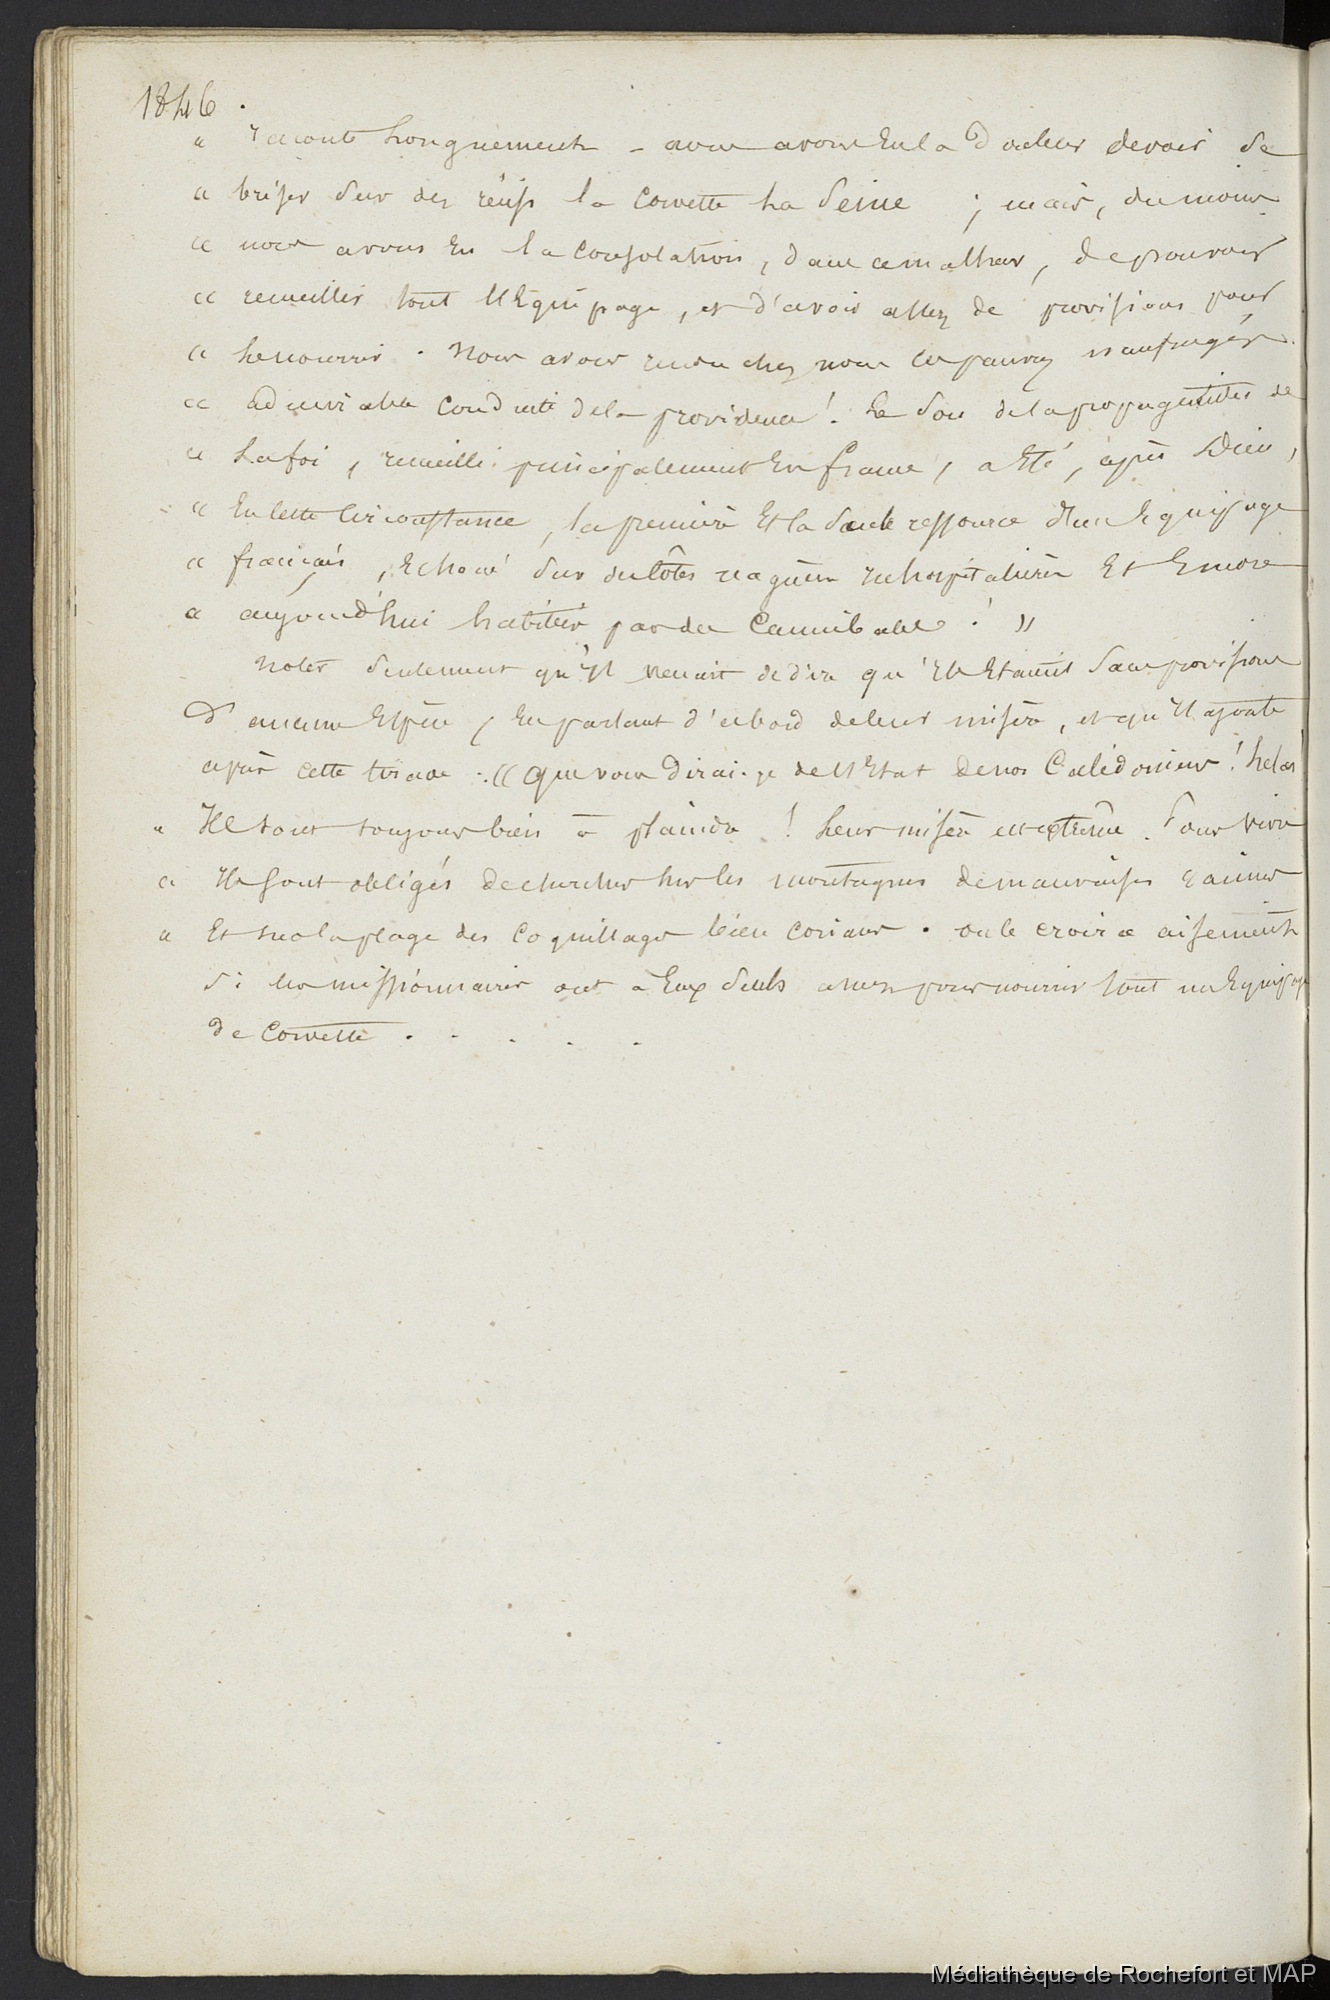 1846.
" raconte longuement - nous avons eu la douleur de voir se
" briser sur des récifs la corvette la Seine ; mais, du moins
" nous avons eu la consolation, dans ce malheur, de pouvoir
" recueillir tout l'Equipage, et d'avoir assez de provisions pour
" le nourrir. Nous avons chez nous ces pauvres naufragés.
" admirable conduite de la providence ! Le Sou de la propagation de
" la foi, recueilli principalement en france, a Eté, après Dieu,
" En cette circonstance, la première Et la Seule ressource d'un Equipage
" français, Echoué sur des côtes naguère inhospitalières Et Encore
" aujourd'hui habitées par des Cannibales ! "
Notez Seulement qu'il venait de dire qu'ils Etaient Sans provisions
d'aucune Espèce, En parlant d'abord de leur misère, et qu'il ajoute
après cette tirade : " Que vous dirai-je de l'Etat de nos Calédoniens ! helas
" Ils sont toujours bien à plaindre ! leur misère est extrême. Pour vivre
" Ils Sont obligés de chercher sur les montagnes de mauvaises racines
" Et sur la plage des coquillages bien coriaces. on le croira aisement
Si les missionnaires ont à Eux Seuls assez pour nourrir tout un Equipage
de Corvette . . . . .
Médiathèque de Rochefort et MAP